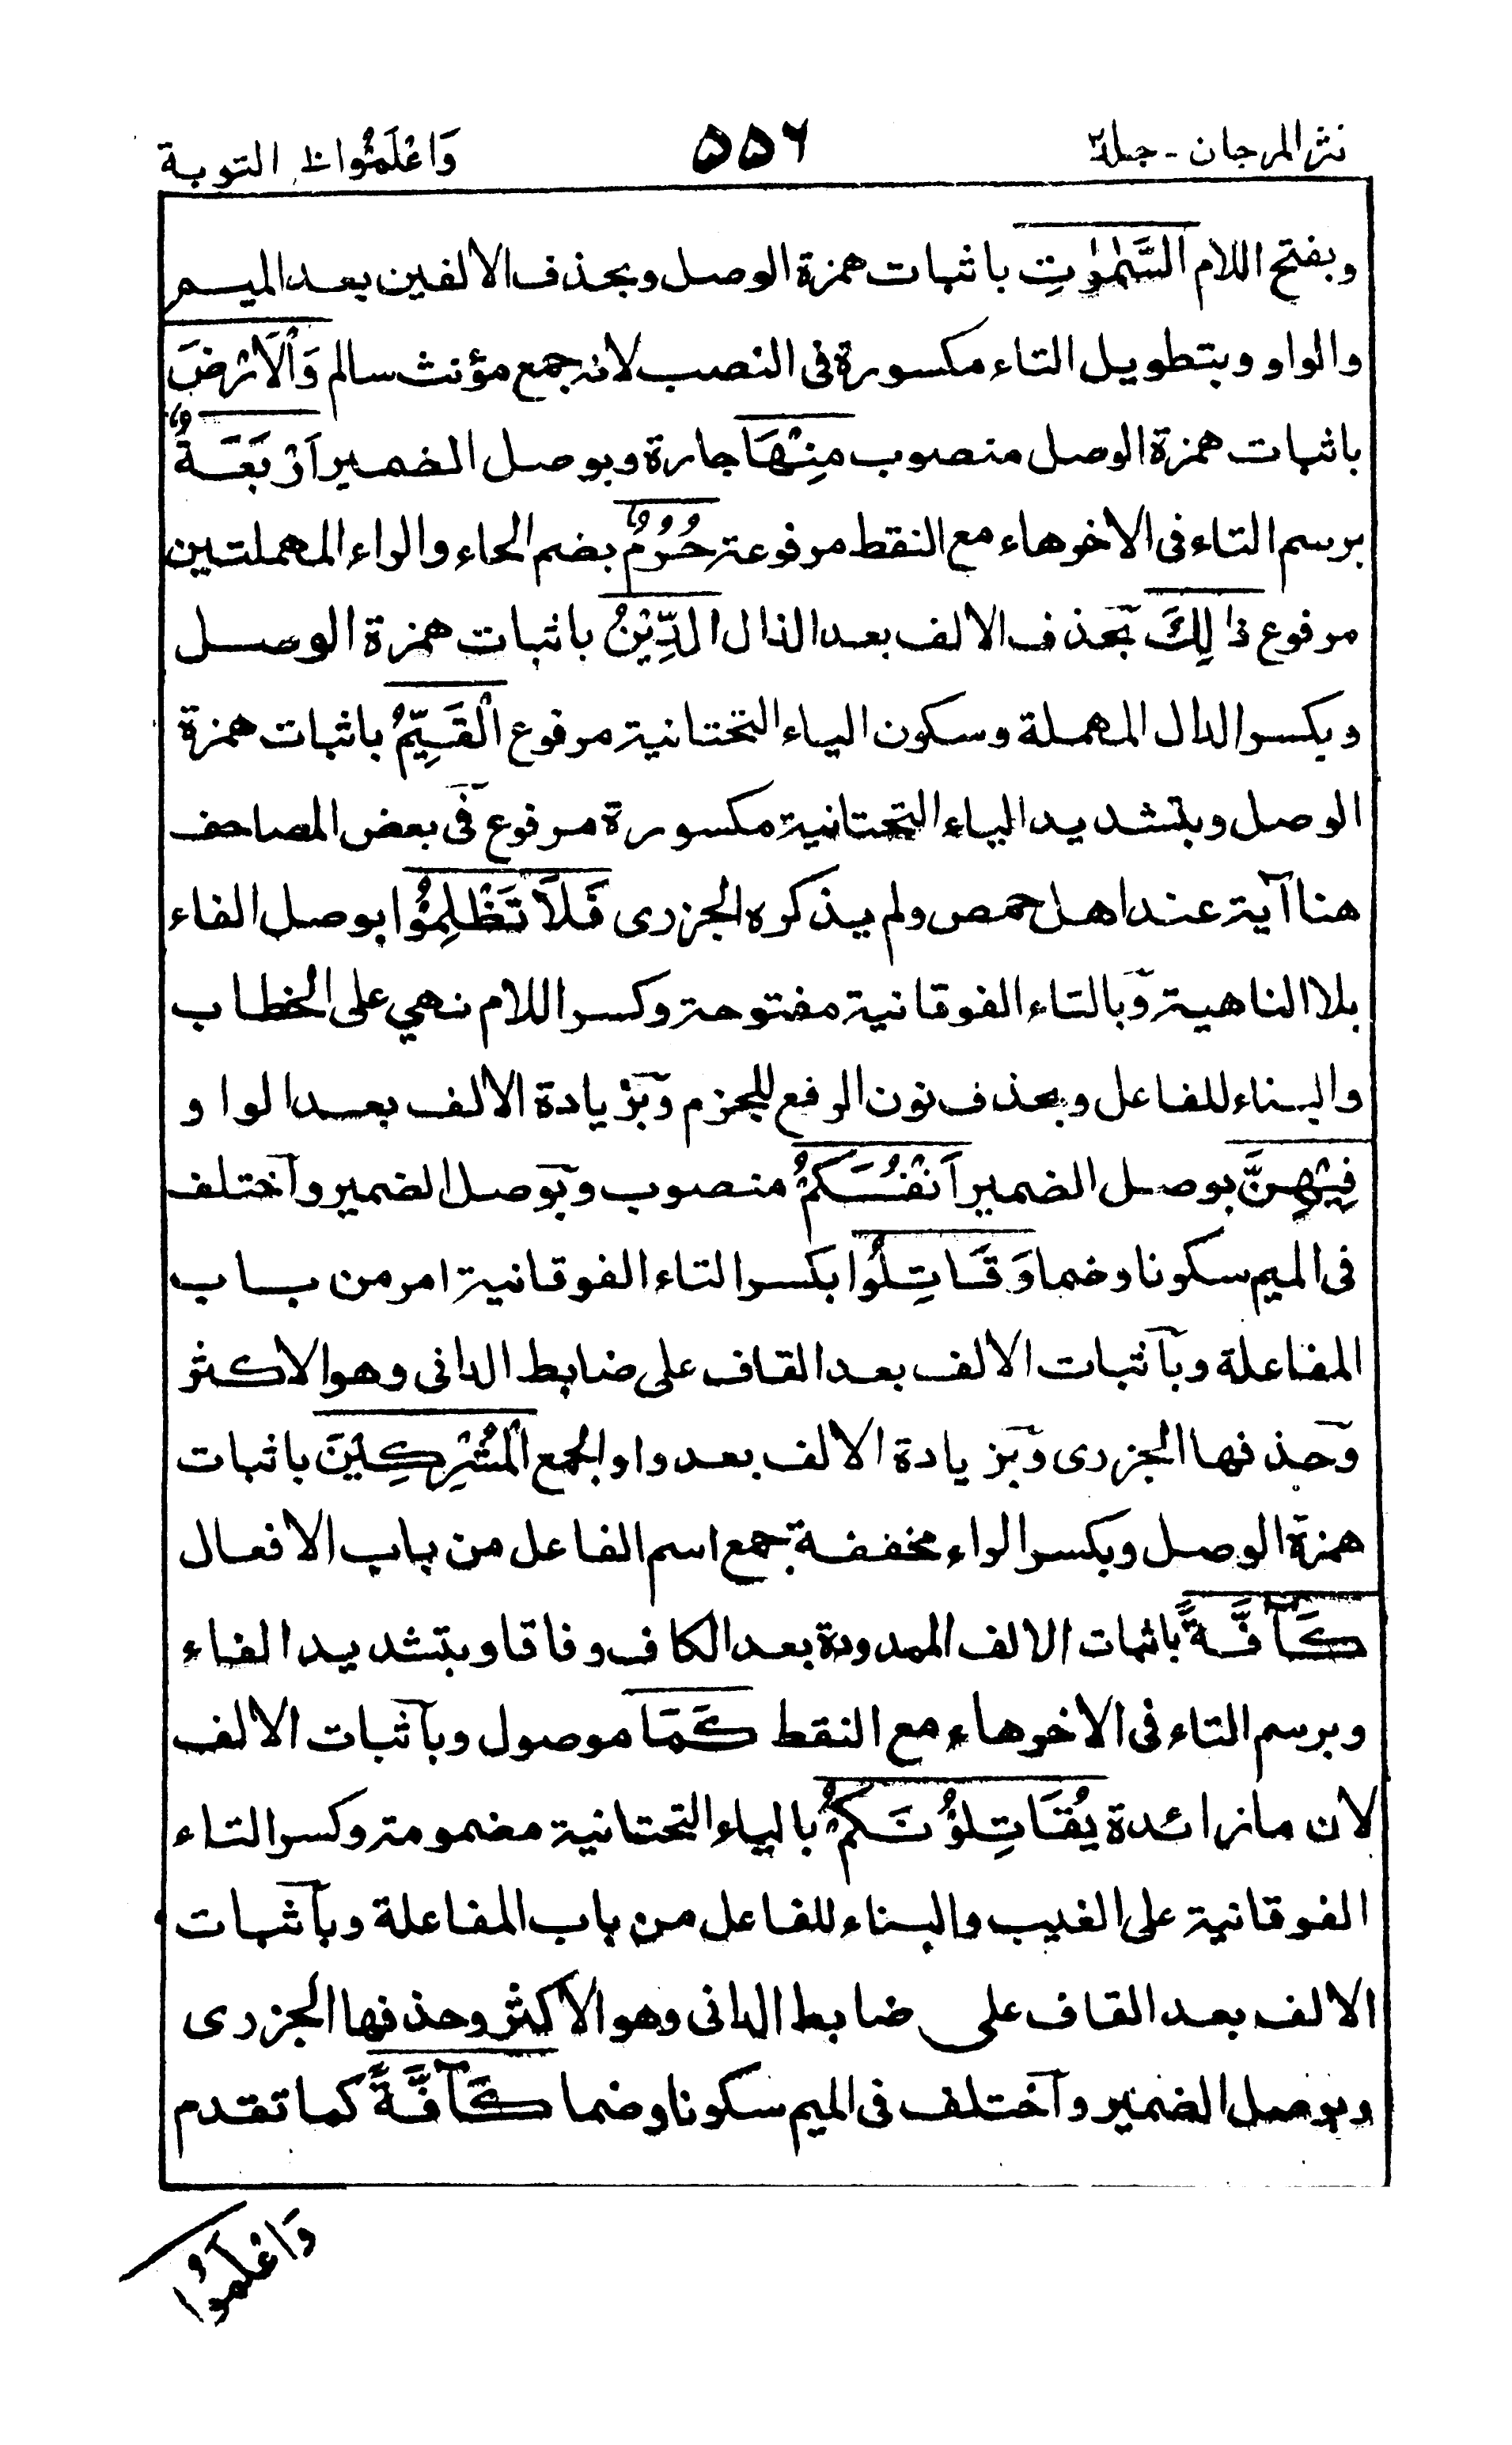 نثر المرجان - جلد٢ ٥٥٦ وَاعْلَمُوْا التوبة
وبفتح اللام السَّمٰوٰتِ باثبات همزة الوصل وبحذف الالفين بعد الميم
والواو وبتطويل التاء مكسورة فى النصب لانه جمع مؤنث سالم وَالْاَرْضَ
باثبات همزة الوصل منصوب مِنْهَا جارة وبوصل الضمير اَرْبَعَةٌ
برسم التاء فى الاخر هاء مع النقط مرفوعة حُرُمٌ بضم الحاء والراء المهملتين
مرفوع ذٰلِكَ بحذف الالف بعد الذال الدِّيْنُ باثبات همزة الوصل
وبكسر الدال المهملة وسكون الياء التحتانية مرفوع الْقَيِّمُ باثبات همزة
الوصل وبتشديد الياء التحتانية مكسورة مرفوع فى بعض المصاحف
هنا آية عند اهل حمص ولم يذكره الجزرى فَلَا تَظْلِمُوْا بوصل الفاء
بلا الناهية وبالتاء الفوقانية مفتوحة وكسر اللام نهي على الخطاب
والبناء للفاعل وبحذف نون الرفع للجزم وبزيادة الالف بعد الواو
فِيْهِنَّ بوصل الضمير اَنْفُسَكُمْ منصوب وبوصل الضمير واختلف
فى الميم سكونا وضما وَقَاتِلُوا بكسر التاء الفوقانية امر من باب
المفاعلة وباثبات الالف بعد القاف على ضابط الدانى وهو الاكثر
وحذفها الجزرى وبزيادة الالف بعد واو الجمع الْمُشْرِكِيْنَ باثبات
همزة الوصل وبكسر الراء مخففة جمع اسم الفاعل من باب الافعال
كَآفَّةً باثبات الالف الممدودة بعد الكاف وفاقا وبتشديد الفاء
وبرسم التاء فى الاخر هاء مع النقط كَمَا موصول وباثبات الالف
لان ما زائدة يُقَاتِلُوْنَكُمْ بالياء التحتانية مضمومة وكسر التاء
الفوقانية على الغيب والبناء للفاعل من باب المفاعلة وباثبات
الالف بعد القاف على ضابط الدانى وهو الاكثر وحذفها الجزرى
وبوصل الضمير واختلف فى الميم سكونا وضما كَآفَّةً كما تقدم
وَاعْلَمُوْا